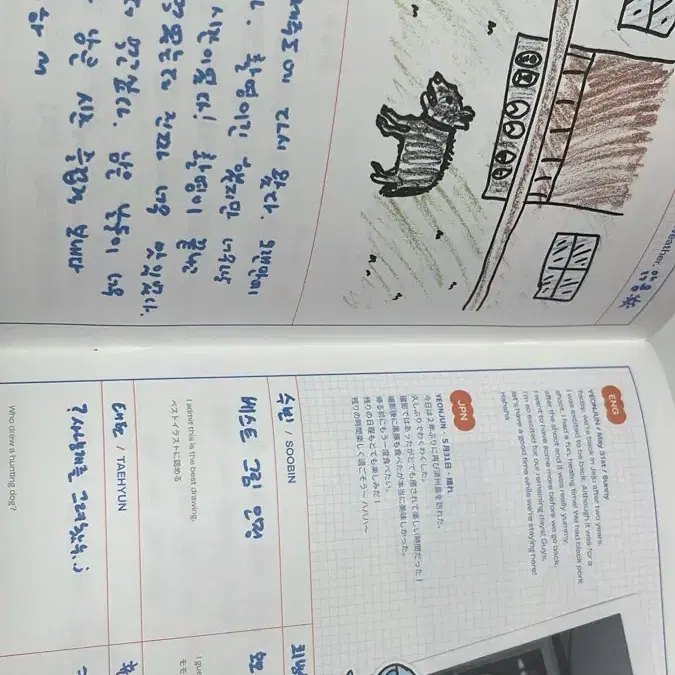 Weather.
다시 왔다. 오랜만이
촬영이긴 했지만 너무너
시간이었다! 촬영이 끝난
먹었는데 진짜 너무 맛있었다.
남은 날들이 너무
남은 시간 즐겁게 보내자
ENG
YEONJUN / May 31st / Sunny
Today, we're back in Jeju after two years.
I was excited to be back. Although it was for a
shoot, I had a fun, healing time! We had black pork
after the shoot and it was really yummy.
I want to have some more before we go back.
I'm so excited for our remaining days! Guys,
let's have a good time while we're staying here!
Hahaha
JPN
YEONJUN ・ 5月31日・晴れ
今日は2年ぶりに再び済州島を訪れた。
久しぶりでわくわくした。
撮影ではあったがとても癒されて楽しい時間だった!
撮影後に黒豚も食べたが本当に美味しかった。
帰る前にもう一度食べたい。
残りの日程もとても楽しみだ!
残りの時間楽しく過ごそう〜 ハハハ〜
수빈 / SOOBIN
베스트 그림 인정
I admit this is the best drawing.
ベストイラストに認める
태현 / TAEHYUN
사냥개를 그려놨누
Who drew a hunting dog?